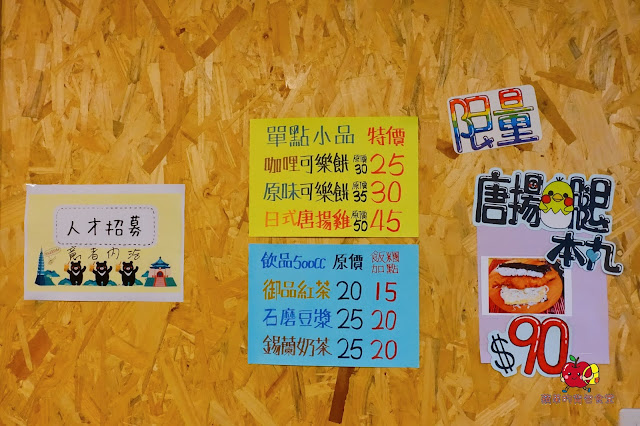 人才招募
意者內洽
單點小品 特價
咖哩可樂餅 原價30 25
原味可樂餅 原價35 30
日式唐揚雞 原價50 45
飲品500CC 原價 飯麵加點
御品紅茶 20 15
石磨豆漿 25 20
錫蘭奶茶 25 20
限量
唐揚腿
本丸
$90